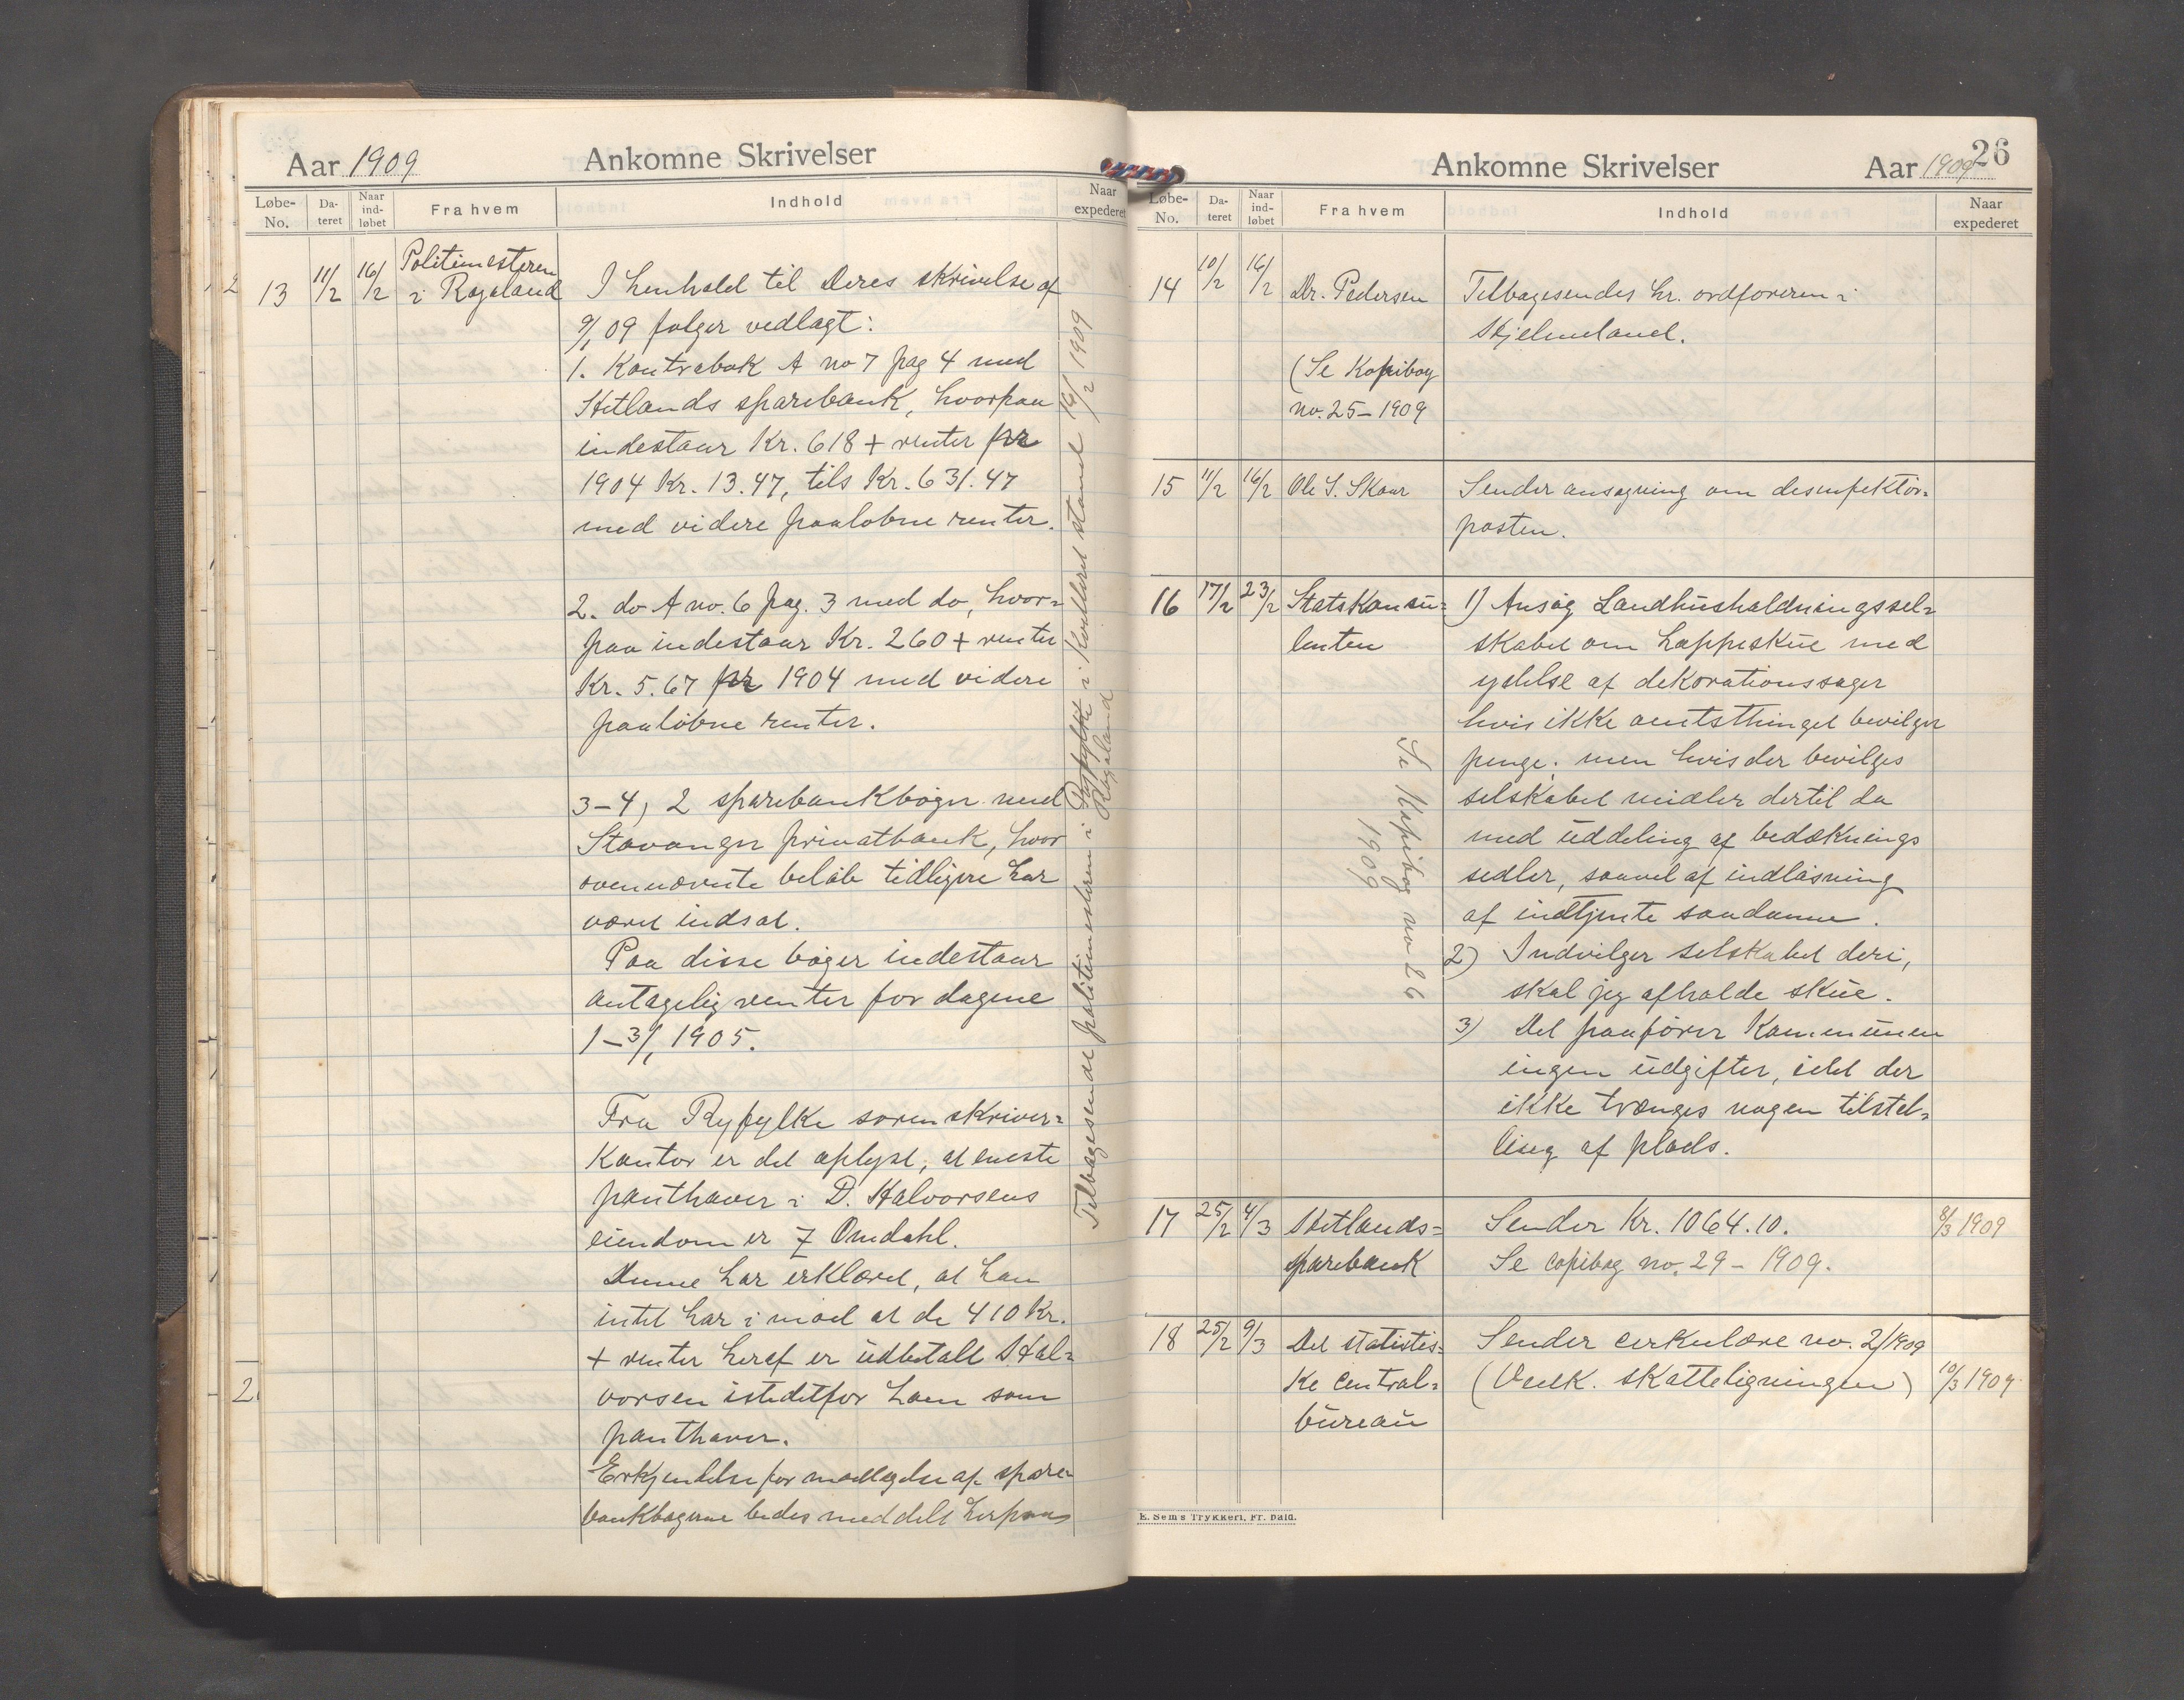 Aar 1909 Ankomne Skrivelser
Løbe-No. Da-teret Naar ind-løbet Fra hvem Indhold Naar expederet
13 11/2 16/2 Politimesteren i Rogaland
I henhold til Deres skrivelse af
9/1 09 følger vedlagt:
1. Kontrabok A no 7 pag 4 med
Hetlands sparebank, hvorpaa
indestaar Kr. 618 + renter pr
1904 Kr. 13.47, tils Kr. 631.47
med videre paaløbne renter.
2. do A no. 6 pag. 3 med do, hvor=
paa indestaar Kr. 260 + renter
Kr. 5.67 pr 1904 med videre
paaløbne renter.
3-4) 2 sparebankbøger med
Stavanger privatbank, hvor
ovennævnte beløb tidligere har
været indsat.
Paa disse bøger indestaar
antagelig renter for dagene
1-3/1 1905.
Fra Ryfylke sorenskriver=
kontor er det oplyst, at eneste
panthaver i D. Halvorsens
eiendom er Z Omdahl.
Denne har erklæret, at han
intet har imod at de 410 Kr.
+ renter heraf er udbetalt Hal=
vorsen istedetfor ham som
panthaver.
Erkjendelse for modtagelse af spare=
bankbøgerne bedes meddelt herpaa
Tilbagesendt politimesteren i Ryfylke i kvitteret stand 19/2 1909
Rogaland
2
Ankomne Skrivelser Aar 1909 26
Løbe-No. Da-teret Naar ind-løbet Fra hvem Indhold Naar expederet
14 10/2 16/2 Dr. Pedersen Tilbagesendes hr. ordføreren i
Skjelmeland.
(Se Kopibog
no. 25 - 1909
15 11/2 16/2 Ole S. Skaar Sender ansøgning om desinfektør=
posten.
16 17/2 23/2 Statskonsu= 1) Ansøg Landhusholdningssel=
lenten skabet om happeskue med
ydelse af dekorationssager
hvis ikke amtsthinget bevilger
penge; men hvis der bevilges
selskabet midler dertil da
med uddeling af bedæknings
sedler, saavel af indløsning
af indtjente saadanne.
2) Indvilger selskabet deri,
skal jeg afholde skue.
3) Det paafører Kommunen
ingen udgifter, idet der
ikke trænges nogen tilstel=
ling af plads.
Se Kopibog no 26
1909
17 25/2 4/3 Hetlands= Sender Kr. 1064.10. 8/3 1909
sparebank Se copibog no. 29 - 1909.
18 25/2 9/3 Det statistis= Sender cirkulære no. 2/1909
ke central= (Vedk. skatteligningen) 10/3 1909
bureau
E. Sem's Trykkeri, Fr.hald.